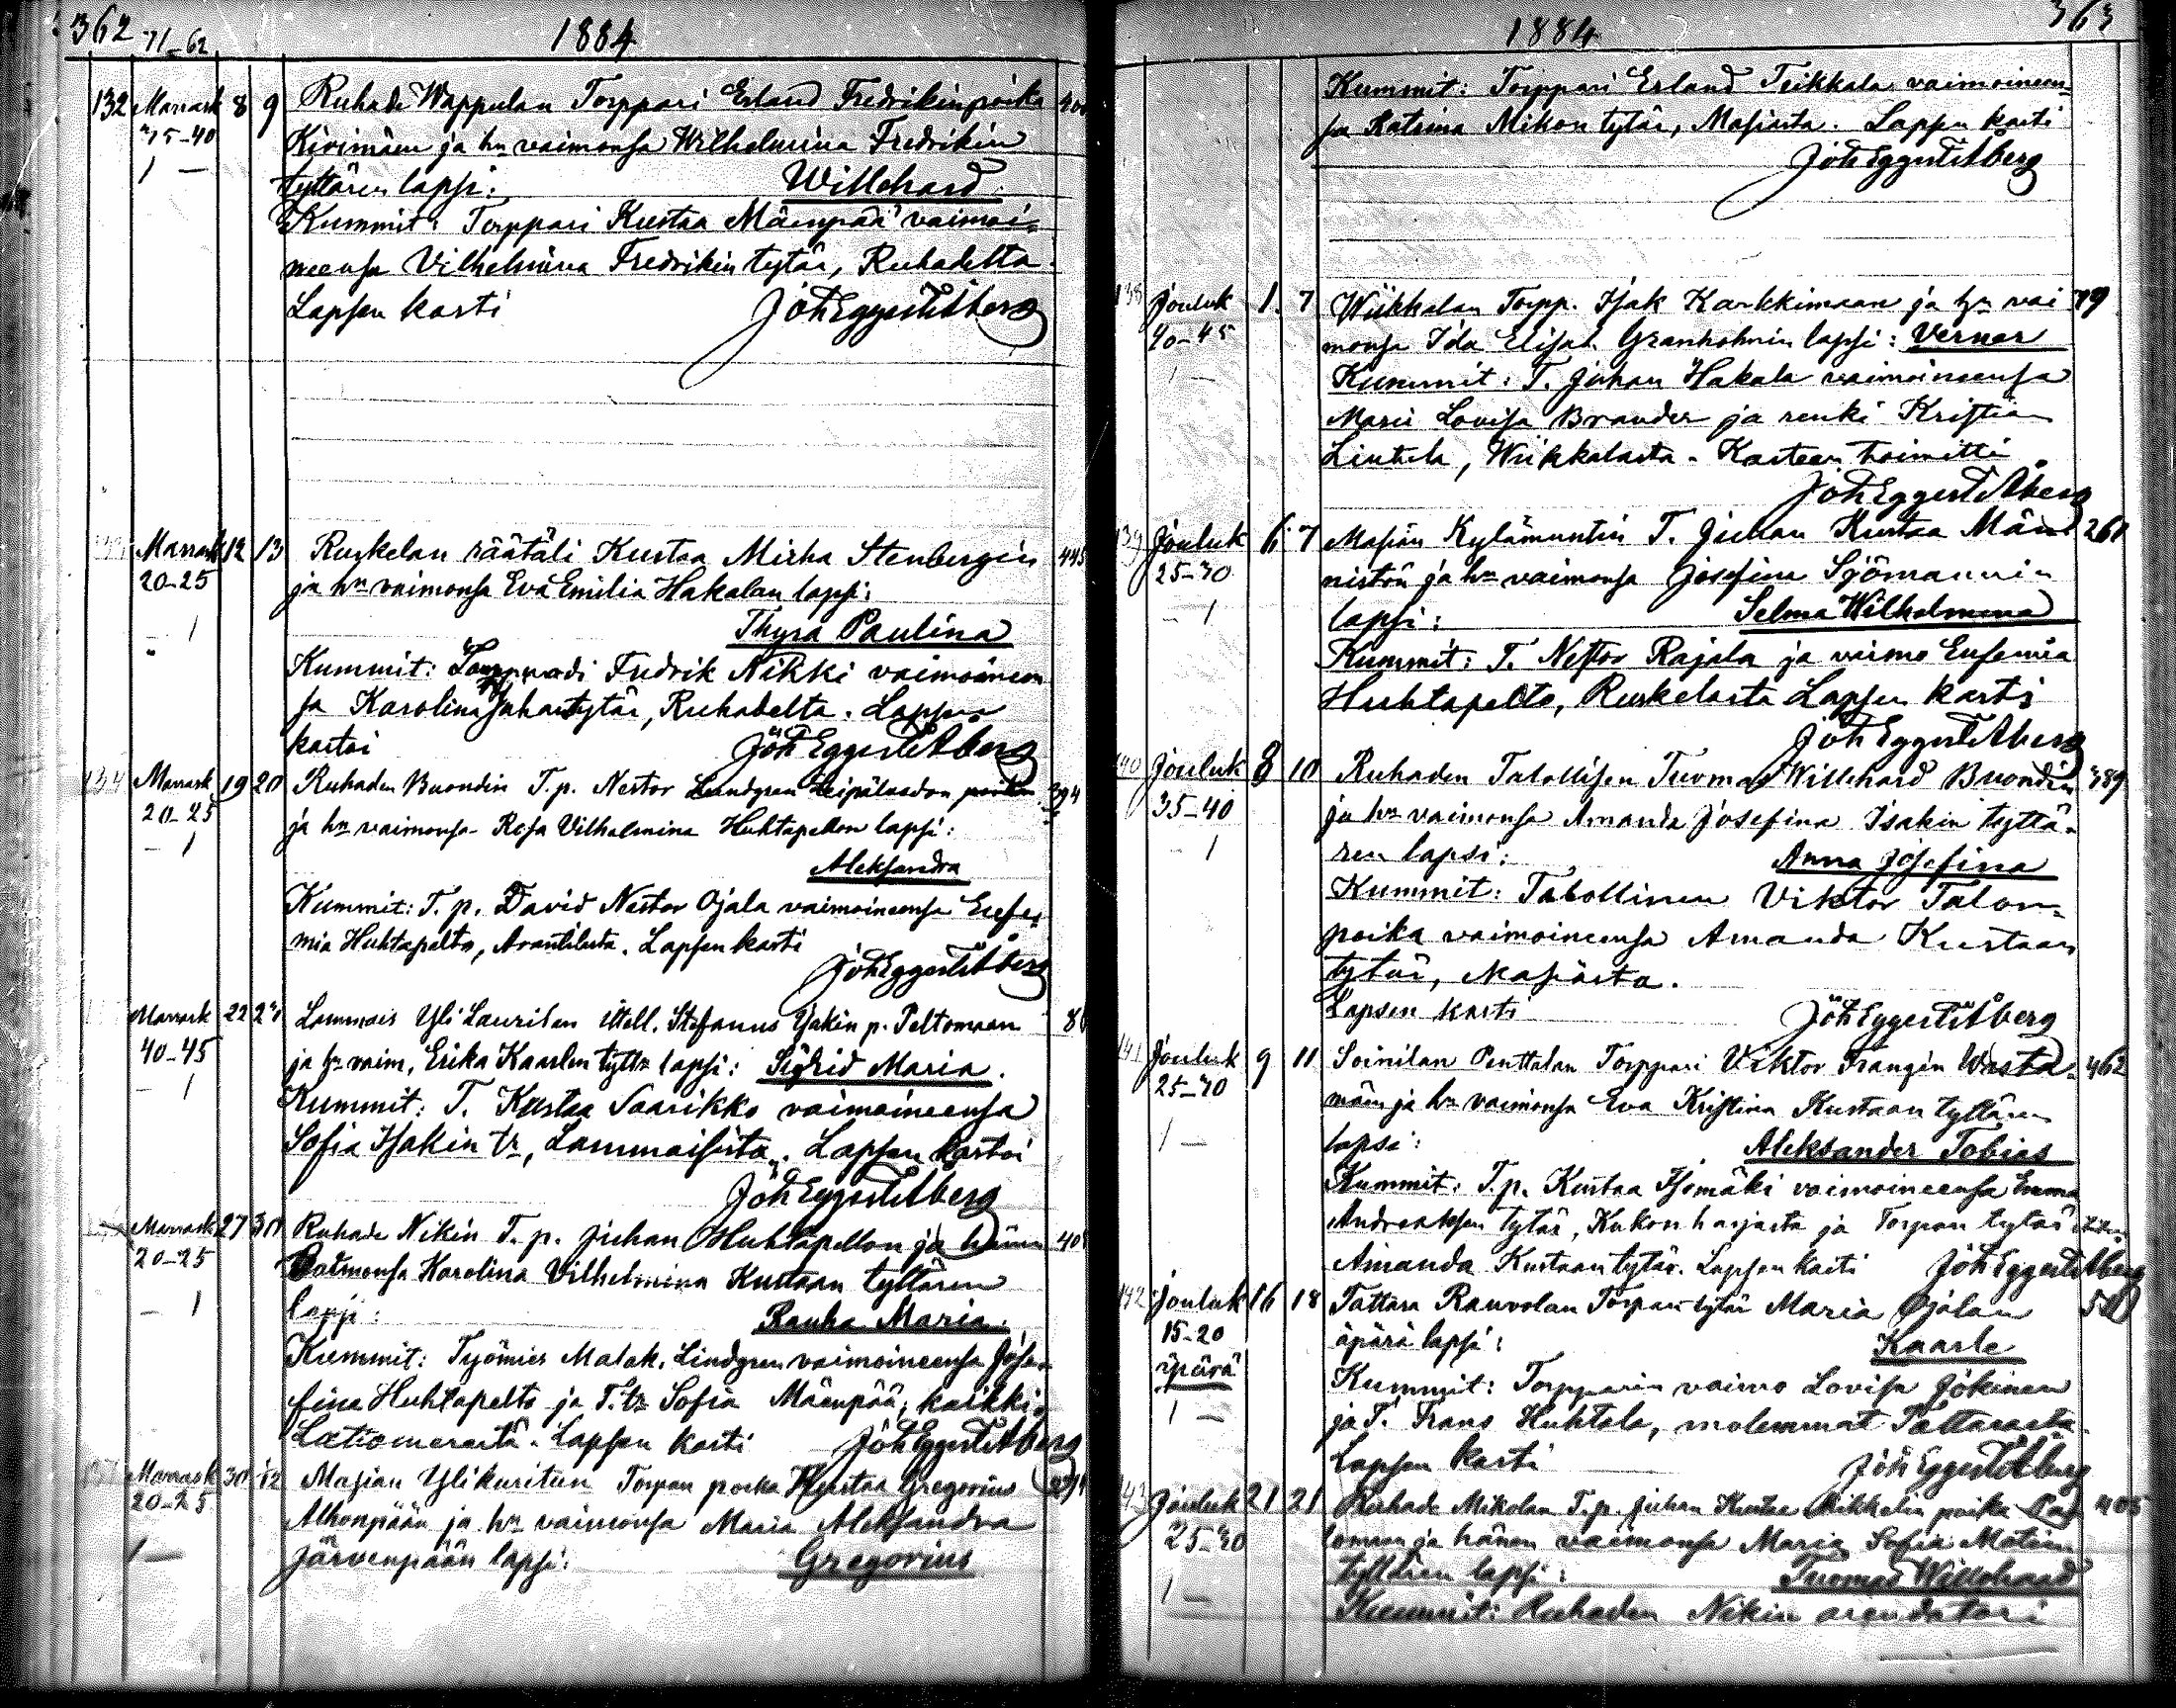 362 71-62 1884
132 Marrask 8 9 Ruhade Wappulan Torppari Erland Fredrikinpoika
35-40 Kivimäen ja hn vaimonsa Wilhelmina Fredrikin
1 - tyttären lapsi: Willehard.
Kummit: Torppari Kustaa Mäenpää vaimoi-
neensa Vilhelmina Fredrikin tytär, Ruhadelta.
Lapsen kasti Joh Eggert Åberg
Marrask 12 13 Ruskelan räätäli Kustaa Mirha Stenbergin 445
20-25 ja hn vaimonsa Eva Emilia Hakalan lapsi:
- 1 Thyra Paulina
Kummit: Fredrik Nikki vaimoineen
sa Karolina Juhantytär, Ruhadelta. Lapsen
kastoi Joh Eggert Åberg
134 Marrask 19 20 Ruhaden Buondin T.p. Nestor Lundgren 394
20-25 ja hn vaimonsa Rosa Vilhelmina Huhtapellon lapsi:
- 1 Aleksandra
Kummit: T.p. David Nestor Ojala vaimoineensa Eufe-
mia Huhtapelto, Arantilasta. Lapsen kasti
Joh Eggert Åberg
Marrask 22 Lammais Yli Laurilan itsell. Stefanus p. Peltomaan
40-45 ja hn vaim. Erika Kaarlen tyttn lapsi: Sigrid Maria.
- 1 Kummit: T. Kustaa Saarikko vaimoineensa
Sofia Isakin tr, Lammaisista. Lapsen kastoi
Joh Eggert Åberg
Marrask 27 30 Ruhade Nikin T.p. Juhan Huhtapellon ja hänen
20-25 vaimonsa Karolina Vilhelmina Kustaan tyttären
- 1 lapsi: Rauha Maria.
Kummit: Työmies Malak. Lindgren vaimoineensa Jose-
fina Huhtapelto ja T. tr Sofia Mäenpää, kaikki
Lapsen kasti Joh Eggert Åberg
137 Marrask 30 Masian Ylikuritun Torpan poika Kustaa Gregorius
20-25 Alhonpään ja hn vaimonsa Maria Aleksandra
1 - Järvenpään lapsi: Gregorius
1884 363
Kummit: Torppari Erland Teikkala vaimoineen
sa Katrina Mikon tytär, Masiasta. Lapsen kasti
Joh Eggert Åberg
138 Jouluk 1. 7 Wiikkalan Torpp. Isak Karkkimaan ja hn vai 79
40-45 monsa Ida Elisab. Granholmin lapsi: Verner
1 - Kummit: T. Juhan Hakala vaimoineensa
Marii Lovisa Brander ja renki Kristian
Lintula, Wiikkalasta - Kasteen toimitti
Joh Eggert Åberg
139 Jouluk 6. 7 Masian Kylämuntin T. Juhan Kustaa Män 261
25-30 nistön ja hn vaimonsa Josefina Sjömannin
- 1 lapsi: Selma Wilhelmina
Kummit: T. Nestor Rajala ja vaimo Eufemia
Huhtapelto, Ruskelasta Lapsen kasti
Joh Eggert Åberg
140 Jouluk 8 10 Ruhaden Talollisen Tuomas Willehard Buondin 389
35-40 ja hn vaimonsa Amanda Josefina Isakin tyttä-
- 1 ren lapsi: Anna Josefina
Kummit: Talollinen Viktor Talon-
poika vaimoineensa Amanda Kustaan
tytär, Masiasta.
Lapsen kasti Joh Eggert Åberg
141 Jouluk 9 11 Soinilan Penttalan Torppari Viktor Frangin Wasta- 462
25-30 mäen ja hn vaimonsa Eva Kristina Kustaan tyttären
1 - lapsi: Aleksander Tobias
Kummit: T.p. Kustaa Isomäki vaimoineensa Emma
Andreaksen tytär, Kukonharjasta ja Torpan tytär
Amanda Kustaantytär. Lapsen kasti Joh Eggert Åberg
142 Jouluk 16 18 Tattara Rauvolan Torpan tytär Maria Ojalan
15-20 äpärä lapsi: Kaarle
äpärä Kummit: Torpparin vaimo Lovisa Jokinen
1 - ja T. Frans Huhtala, molemmat Tattarasta.
Lapsen kasti Joh Eggert Åberg
143 Jouluk 21 21 Ruhade Mikolan T.p. Juhan Kustaa Mikkelin poika Pa 405
25-30 lomaan ja hänen vaimonsa Maria Sofia Matin
1 - tyttären lapsi: Tuomas Willehard
Kummit: Ruhaden Nikin arendatori